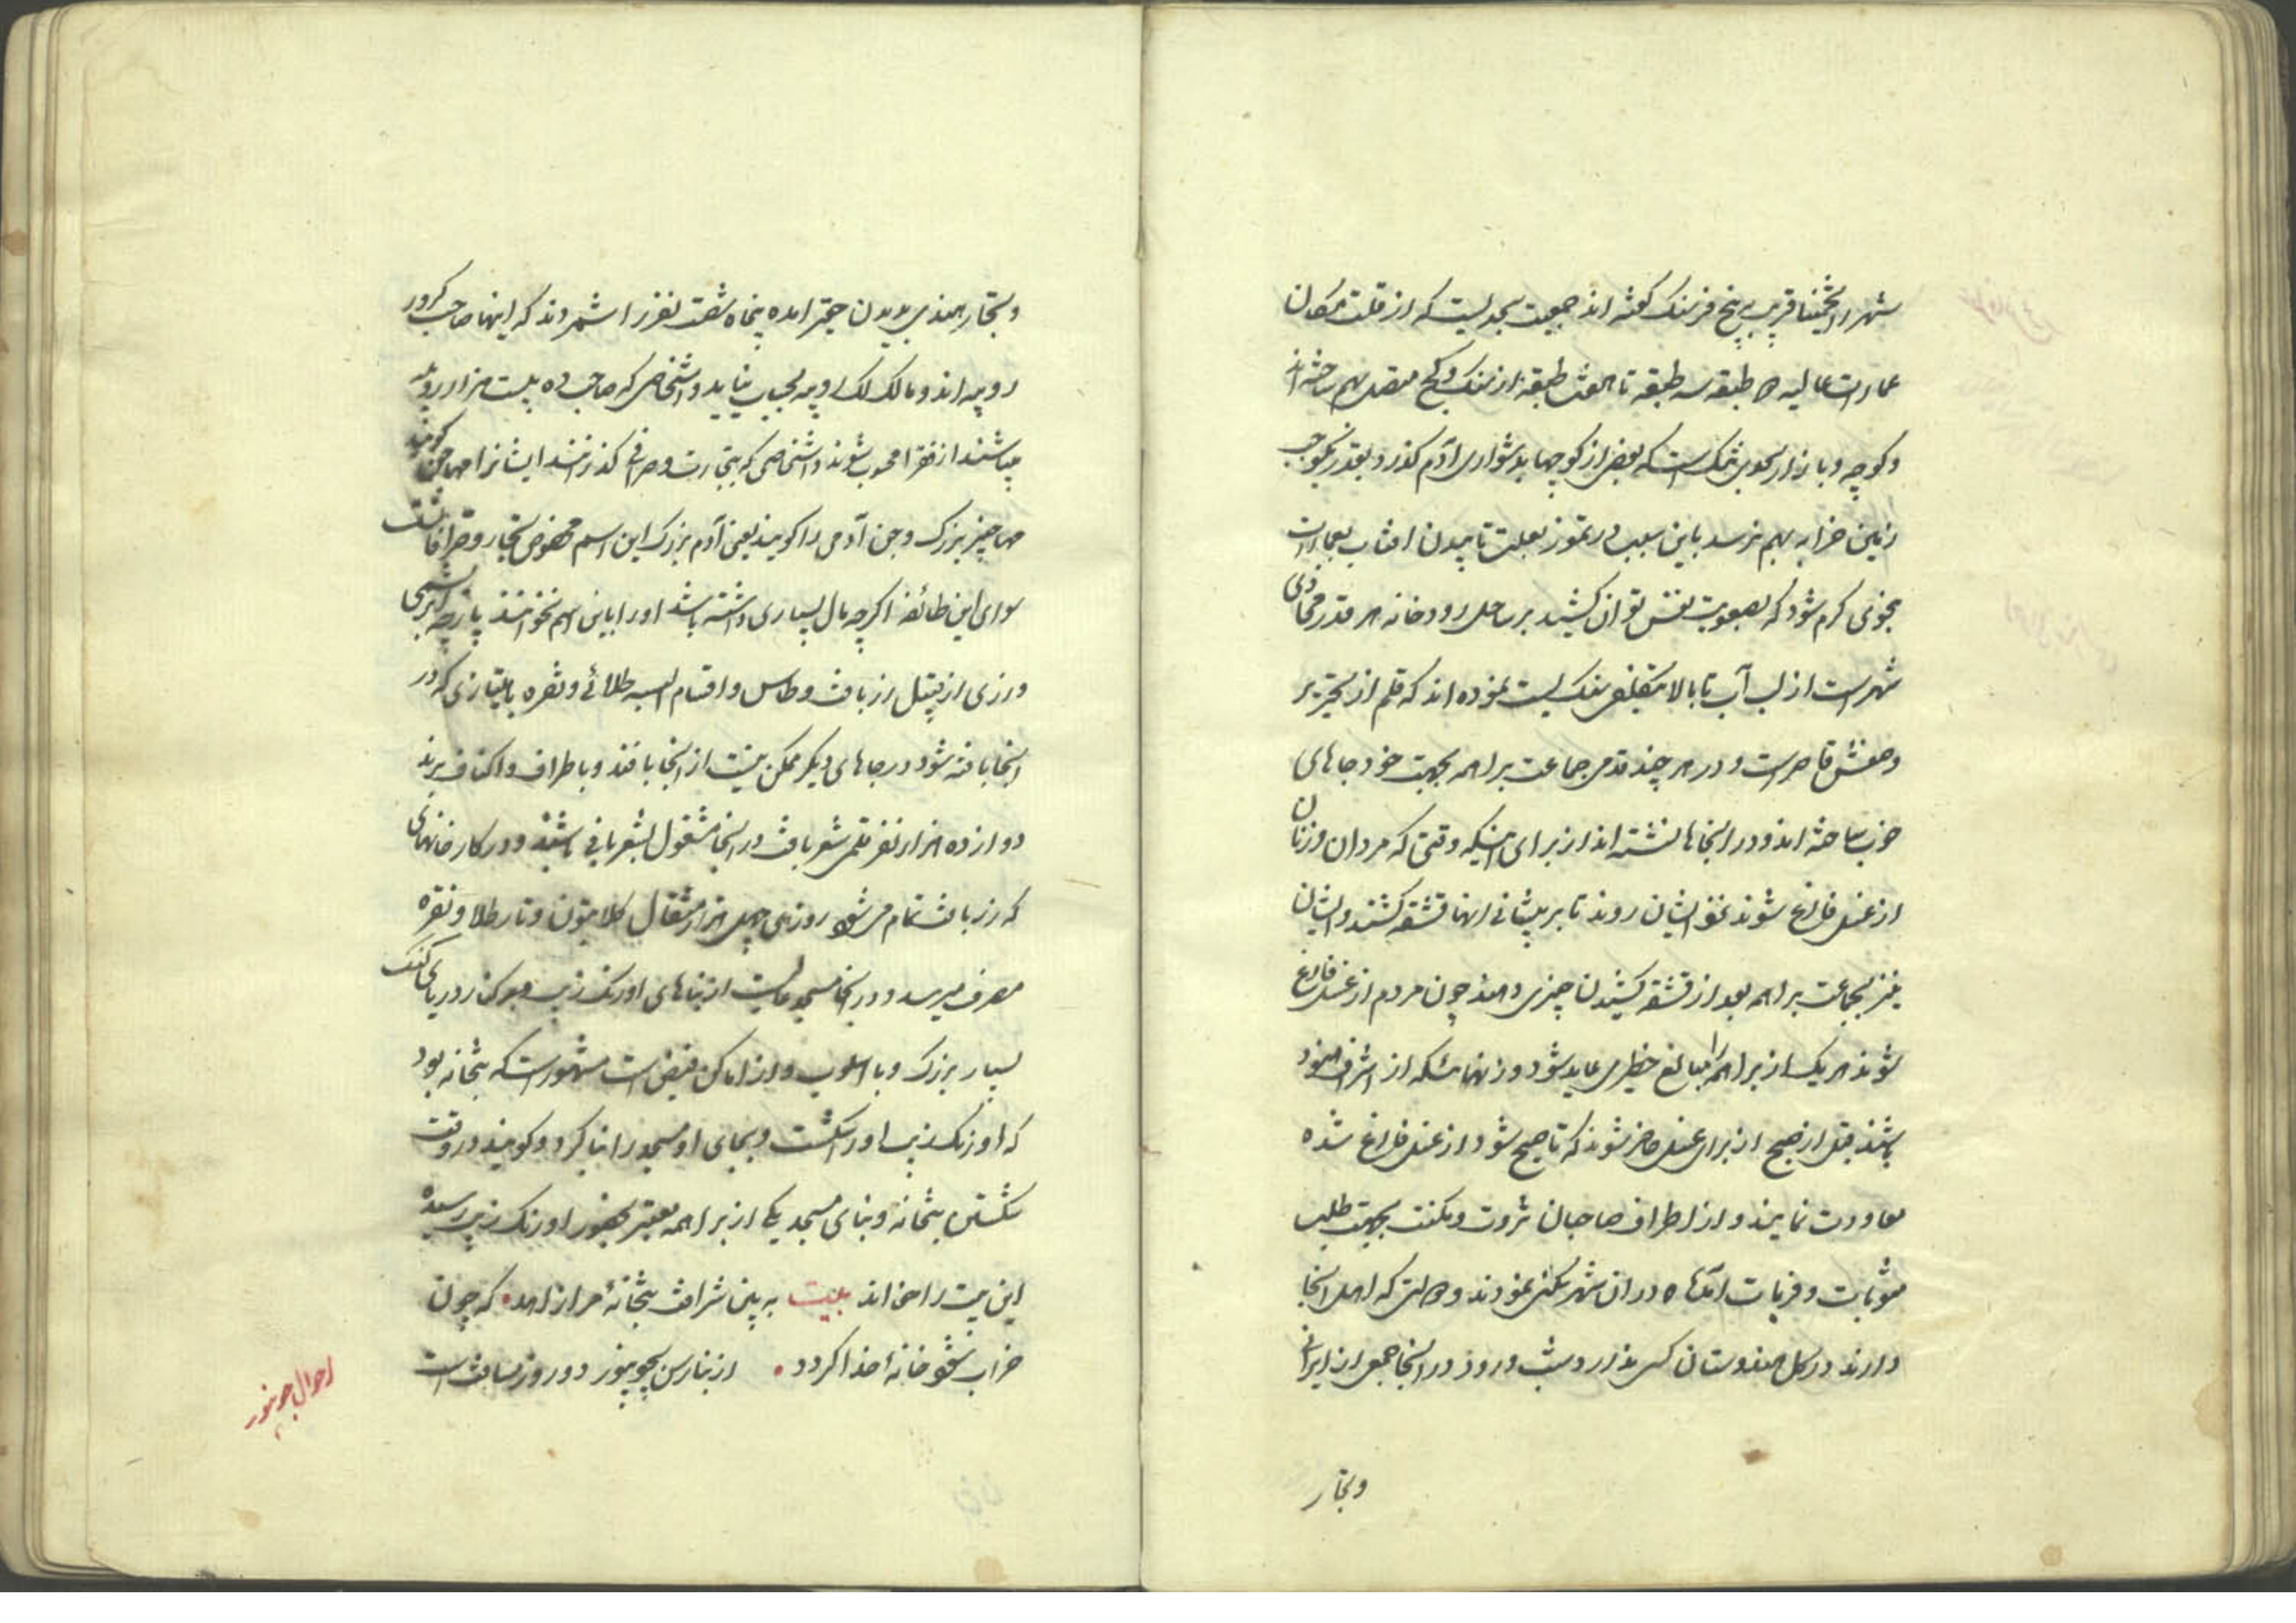 شهر را تخمینا قریب به پنج فرسنک کفته اند جمعیت بحدیست که از قلت مکان
عمارات عالیه ۵ طبقه سه طبقه تا هفت طبقه از سنک و کج متصل بهم ساخته اند
و کوچه و بازار بحدی تنک است که بعضی از کوچها بدشواری آدم کذرد و بقدر یکوجب
زمین خرابه بهم نرسد باین سبب در تموز بعلت تابیدن افتاب بعمارات
بنحوی کرم شود که بصعوبت نفس توان کشید بر ساحل رودخانه هر قدر محاذی
شهر است از لب آب تا بالا بتکلفی سنک بست نموده اند که قلم از تحریر
وصفش قاصر است و در هر چند قدمی جماعت براهمه بجهت خود جاهای
خوب ساخته اند و در انجاها نشسته اند از برای اینکه وقتی که مردان و زنان
از غسل فارغ شوند نزد ایشان روند تا بر پیشانی انها قشقه کشند و ایشان
نیز بجماعت براهمه بعد از قشقه کشیدن چیزی دهند چون مردم از غسل فارغ
شوند هر یک از براهمه را مبالغ خطیری عاید شود و زنهائیکه از اشراف هنود
باشند قبل از صبح از برای غسل حاضر شوند که تا صبح شود از غسل فارغ شده
معاودت نمایند و از اطراف صاحبان ثروت و مکنت بجهت طلب
مثوبات و قربات آمده در ان شهر سکنی نمودند و حالتی که اهل انجا
دارند در کل هندوستان کسی ندارد و شب و روز در انجا جمعی از ایرانی
و تجار
و تجار هندی بدیدن حقیر امده پنجاه شصت نفر را شمردند که اینها صاحب کرور
روپیه اند و مالک لک روپیه بحساب نیاید و اشخاصی که صاحب ده بیست هزار روپیه
میباشند از فقرا محسوب شوند و اشخاصی که بتجارت و صرافی کذرانند ایشانرا مهاجن کویند
مها چیز بزرک و جن آدمی را کویند یعنی آدم بزرک این اسم مخصوص تجار و صرافانست
سوای این طائفه اکرچه مال بسیاری داشته باشد او را باین اسم نخوانند پارچه ابریشمی
و زری از قبیل زرباف و طاس و اقسام البسه طلائی و نقره بامتیازی که در
انجا بافته شود در جاهای دیکر ممکن نیست از انجا بافند و باطراف و اکناف برند
دوازده هزار نفر قلمی شعرباف در انجا مشغول بشعربافی باشند و در کارخانهای
که زرباف تمام میشود روزی چهل هزار مثقال کلابتون و تار طلا و نقره
مصرف میرسد و در انجا مسجد عالیست از بناهای اورنک زیب بر کنار دریای کنک
بسیار بزرک و با اسلوب و از اماکن فیض است مشهور است که بتخانه بود
که اورنک زیب او را شکست و بجای او مسجد را بنا کرد و کویند در وقت
شکستن بتخانه و بنای مسجد یکی از براهمه معتبر بحضور اورنک زیب رسیده
این بیت را خواند بیت به بین شرافت بتخانهٔ مرا زاهد • که چون
خراب شود خانهٔ خدا کردد • از بنارس بجونپور دو روز مسافت است
احوال جونپور